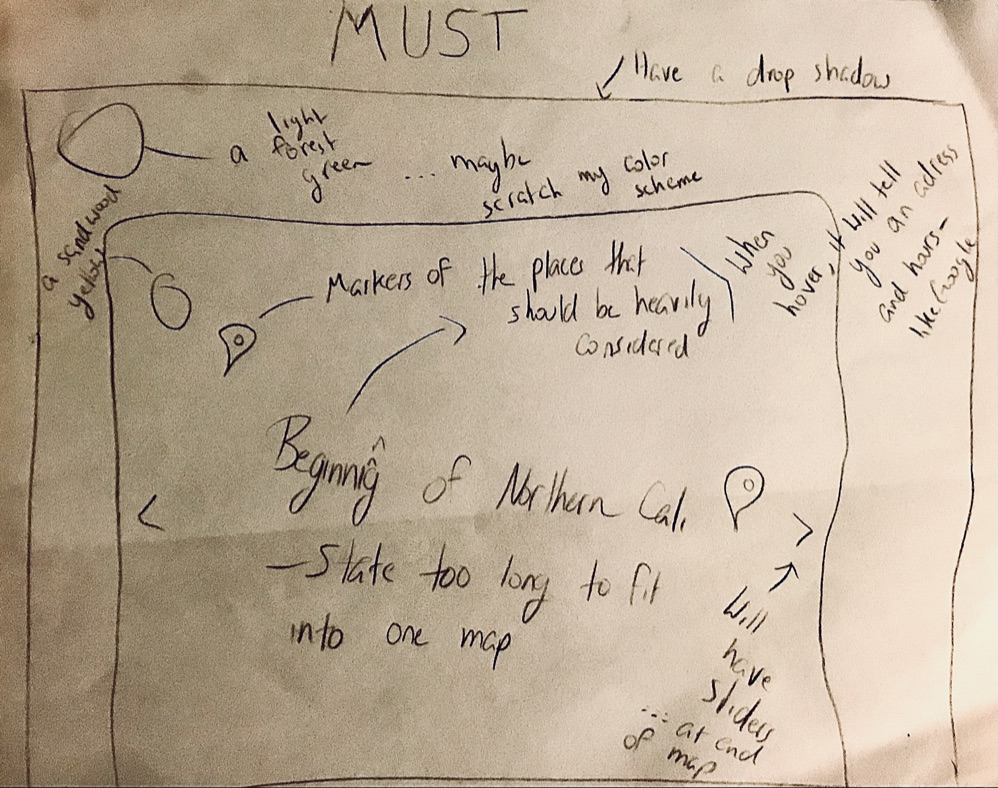 MUST
Have a drop shadow
a light
forest
green ... maybe
scratch my color
scheme
a sandwood
yellow
Markers of the places that
should be heavily
considered
When
you
hover, it will tell
you an adress
and hours-
like Google
Beginnig of Northern Cal.
- State too long to fit
into one map
<
>
Will
have
sliders
... at end
of map